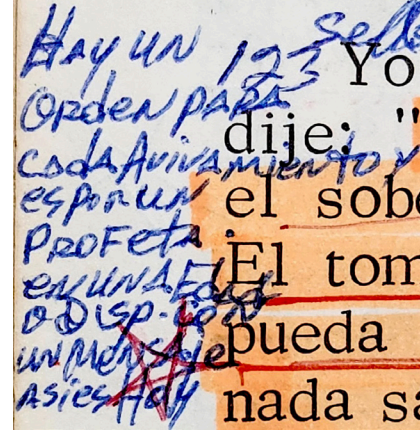 Hay un 123 Sello
Orden para
cada Avivamiento y
es por un
Profeta.
en una Edad
o Disp-
un Mensaje
Asi es Hoy
Yo
dije: "
el sob
El tom
pueda
nada sa